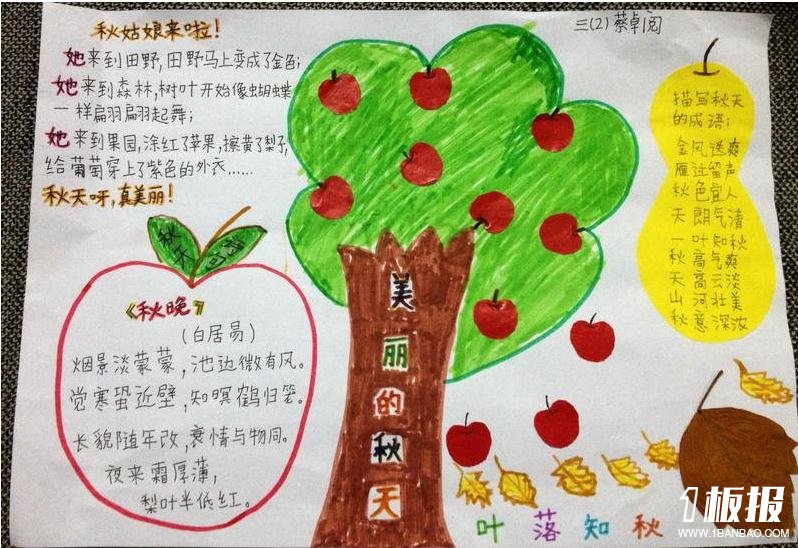 秋姑娘来啦!
她来到田野,田野马上变成了金色;
她来到森林,树叶开始像蝴蝶
一样翩翩起舞;
她来到果园,涂红了苹果,擦黄了梨子,
给葡萄穿上了紫色的外衣……
秋天呀,真美丽!
三(2)蔡卓阅
描写秋天
的成语:
金风送爽
雁过留声
秋色宜人
天朗气清
一叶知秋
秋高气爽
天高云淡
山河壮美
秋意深浓
秋天
《秋晚》
(白居易)
烟景淡蒙蒙,池边微有风。
觉寒蛩近壁,知暝鹤归笼。
长貌随年改,衰情与物同。
夜来霜厚薄,
梨叶半低红。
美
丽
的
秋
天
叶落知秋
1板报
WWW.1BANBAO.COM